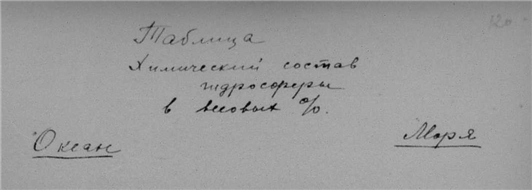 Таблица
Химический состав
гидросферы
в весовых %.
Океан
Моря